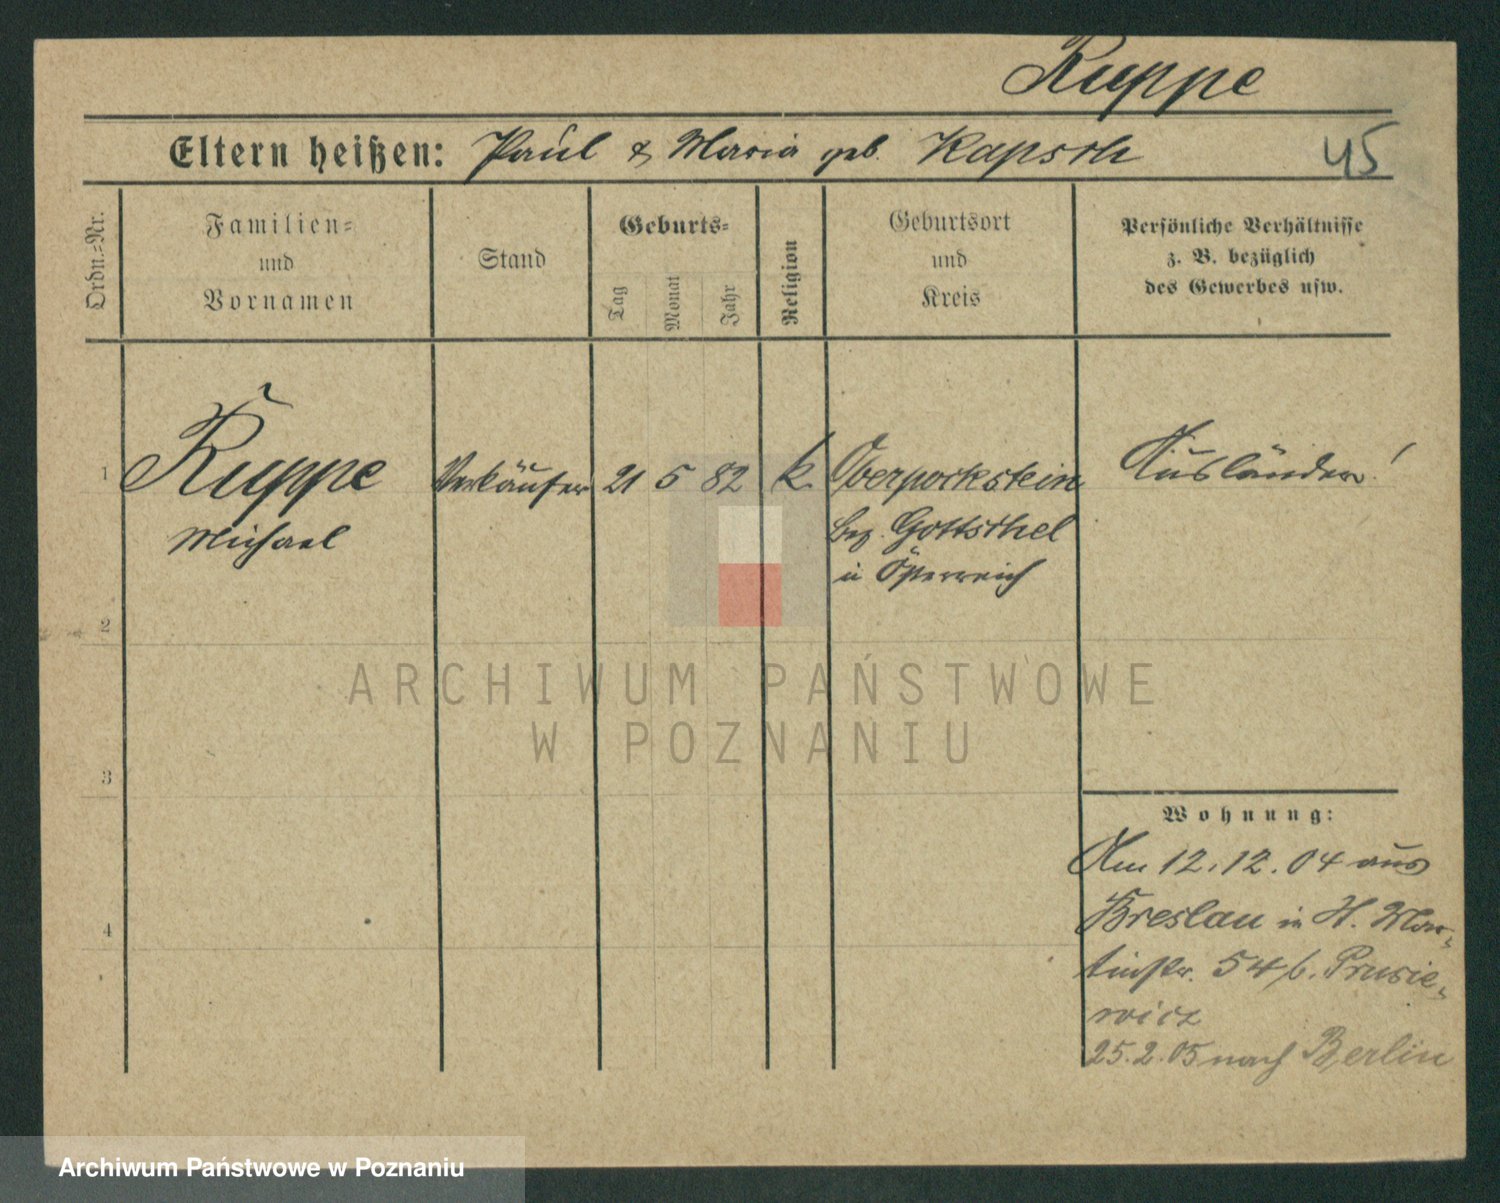 Ruppe
Eltern heißen: Paul & Maria geb. Kapsch
45
Ordn.-Nr.
Familien-
und
Vornamen
Stand
Geburts-
Tag
Monat
Jahr
Religion
Geburtsort
und
Kreis
Persönliche Verhältnisse
z. B. bezüglich
des Gewerbes usw.
1 Ruppe Verkäufer 21 5 82 k. Oberpockstein Ausländer!
Michael
Bez. Gottschel
in Österreich
2
3
4
Wohnung:
Am 12.12.04 aus
Breslau in H. Mar-
tinstr. 54 b. Prusie-
wicz
25.2.05 nach Berlin
ARCHIWUM PAŃSTWOWE
W POZNANIU
Archiwum Państwowe w Poznaniu